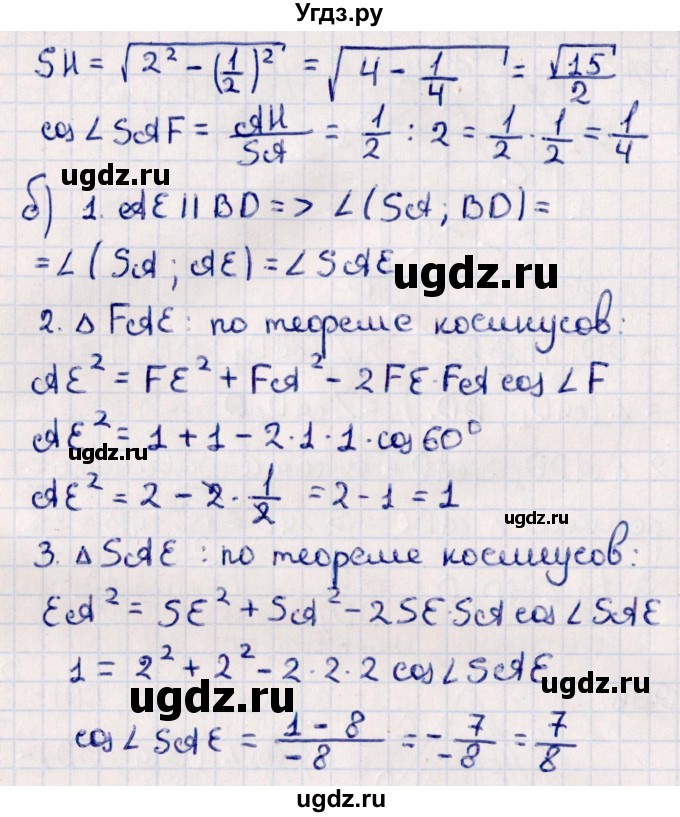 Угдз.ру
SH = √(2² − (1/2)²) = √(4 − 1/4) = √15/2
cos∠SAF = AH/SA = 1/2 : 2 = 1/2 · 1/2 = 1/4
ugdz.ru
б) 1. AE || BD => ∠(SA ; BD) =
= ∠(SA ; AE) = ∠SAE
ugdz.ru
2. Δ FAE : по теореме косинусов:
AE² = FE² + FA² − 2FE·FA cos∠F
ugdz.ru
AE² = 1 + 1 − 2·1·1·cos60°
AE² = 2 − 2 · 1/2 = 2 − 1 = 1
ugdz.ru
3. Δ SAE : по теореме косинусов:
EA² = SE² + SA² − 2SE·SA cos∠SAE
1 = 2² + 2² − 2·2·2 cos∠SAE
ugdz.ru
ugdz.ru
cos∠SAE = (1 − 8)/−8 = −7/−8 = 7/8
ugdz.ru